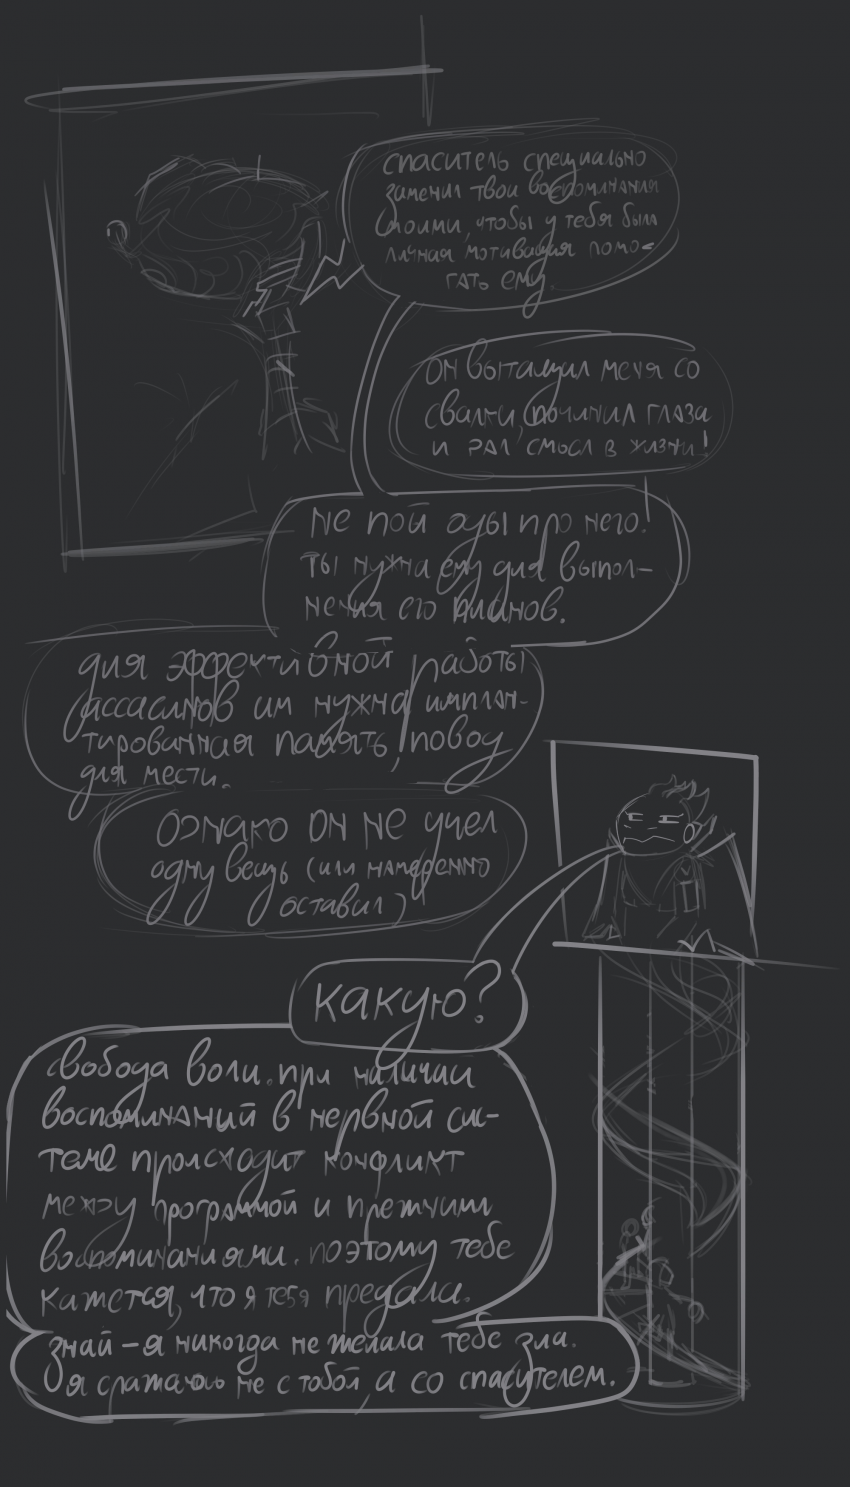 спаситель специально
заменил твои воспоминания
моими, чтобы у тебя была
личная мотивация помо-
гать ему.
он вытащил меня со
свалки, починил глаза
и дал смысл в жизни!
не пой оды про него!
ты нужна ему для выпол-
нения его планов.
для эффективной работы
ассасинов им нужна имплан-
тированная память, повод
для мести.
однако он не учел
одну вещь (или намеренно
оставил)
какую?
свобода воли. при наличии
воспоминаний в нервной сис-
теме происходит конфликт
между программой и прежними
воспоминаниями. поэтому тебе
кажется, что я тебя предала.
знай – я никогда не желала тебе зла.
я сражаюсь не с тобой, а со спасителем.